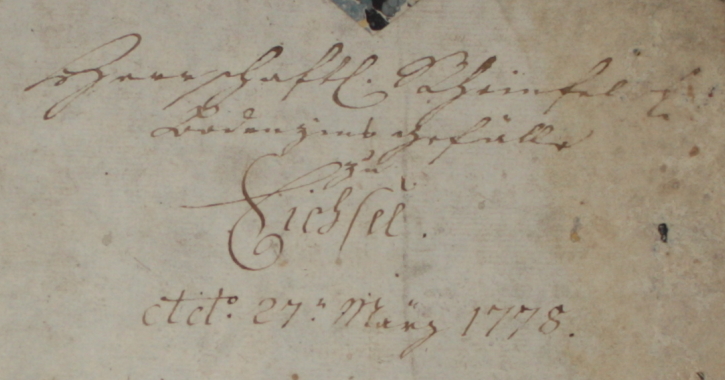 Herrschaftl. Rheinfel
Bodenzins gefälle
zu
Eichsel.
Act.º 27.ⁿ März 1778.